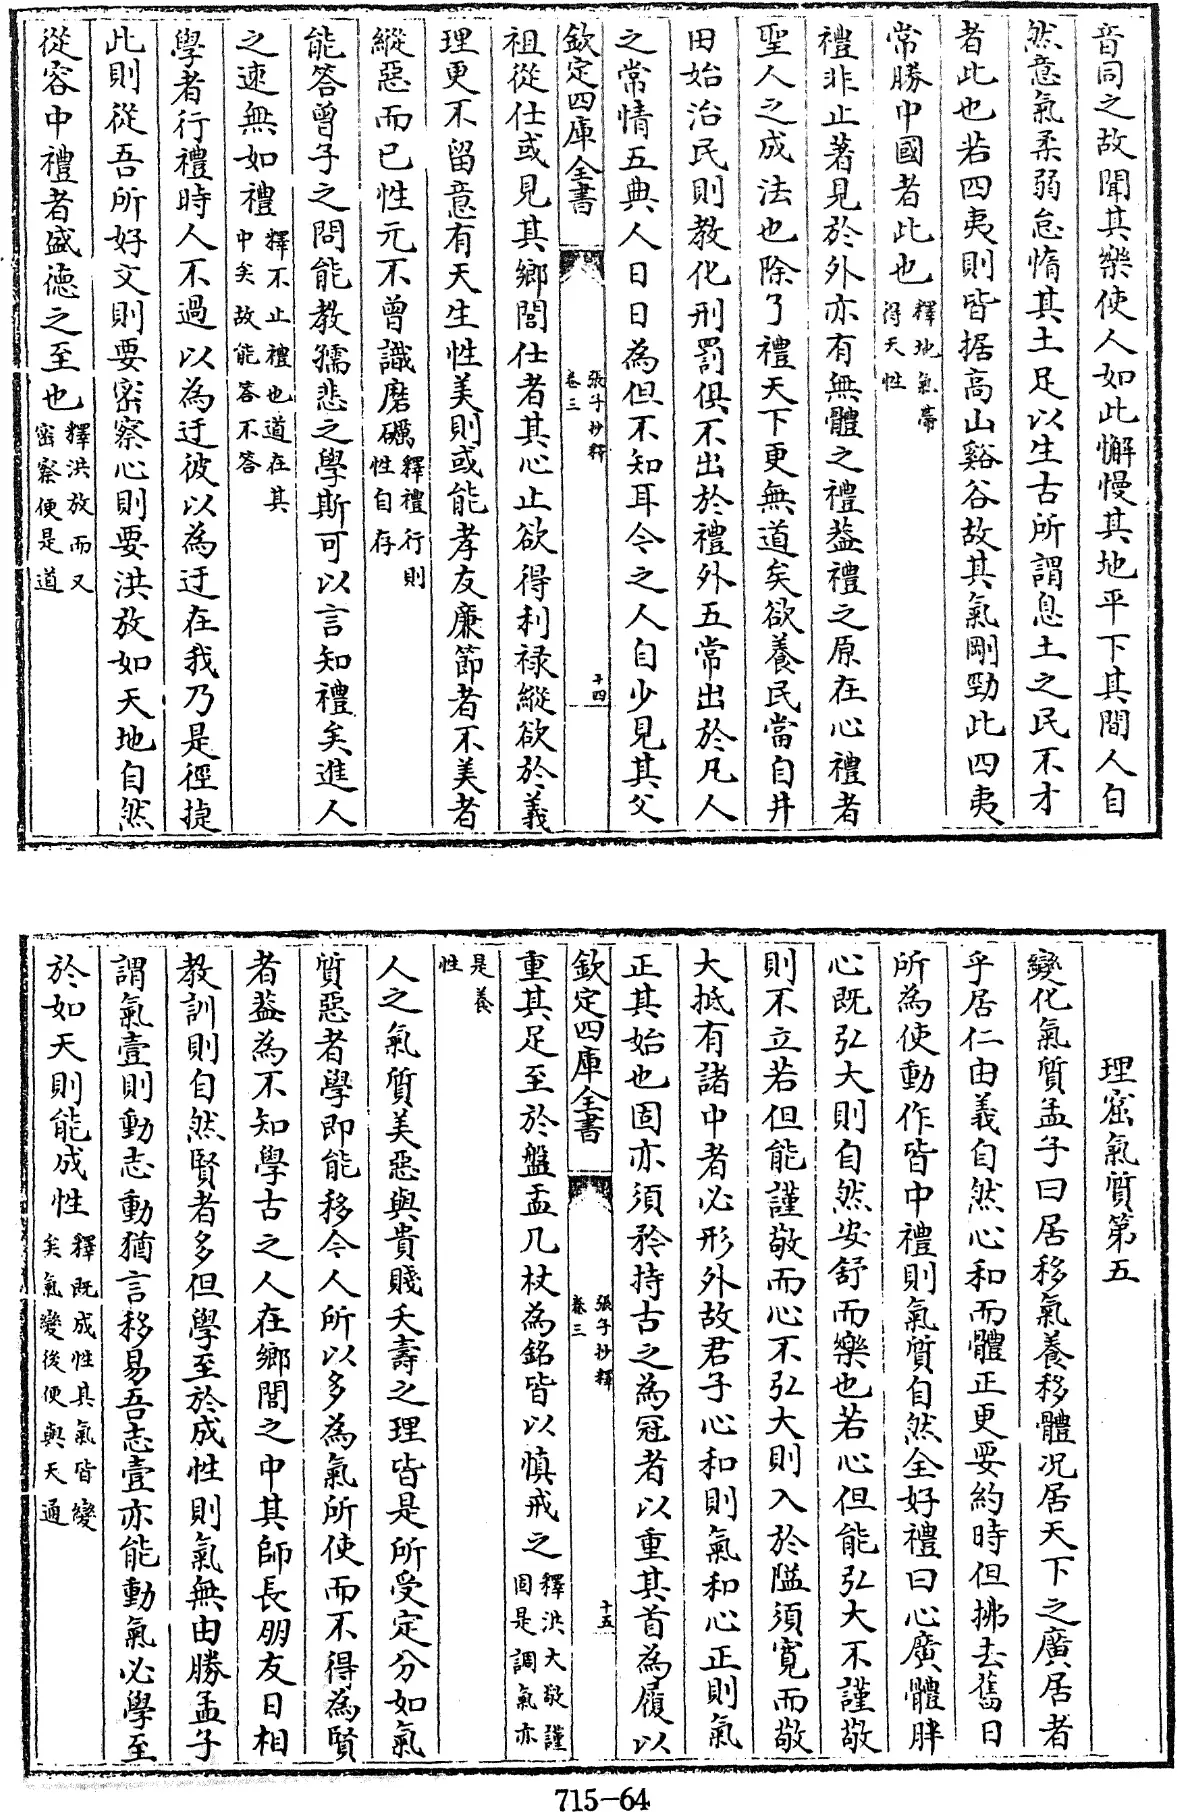 音同之故聞其樂使人如此懈慢其地平下其間人自
然意氣柔弱怠惰其土足以生古所謂息土之民不才
者此也若四夷則皆据高山谿谷故其氣剛勁此四夷
常勝中國者此也釋地氣臺得天性
禮非止著見於外亦有無體之禮葢禮之原在心禮者
聖人之成法也除了禮天下更無道矣欲養民當自井
田始治民則教化刑罰俱不出於禮外五常出於凡人
之常情五典人日日為但不知耳今之人自少見其父
欽定四庫全書 張子抄釋 卷三 十四
祖從仕或見其鄉閭仕者其心止欲得利禄縱欲於義
理更不留意有天生性美則或能孝友廉節者不美者
縱惡而已性元不曾識磨礪釋禮行則性自存
能答曾子之問能教孺悲之學斯可以言知禮矣進人
之速無如禮釋不止禮也道在其中矣故能答不答
學者行禮時人不過以為迂彼以為迂在我乃是徑捷
此則從吾所好文則要密察心則要洪放如天地自然
從容中禮者盛德之至也釋洪放而又密察便是道
理窟氣質第五
變化氣質孟子曰居移氣養移體况居天下之廣居者
乎居仁由義自然心和而體正更要約時但拂去舊日
所為使動作皆中禮則氣質自然全好禮曰心廣體胖
心既弘大則自然安舒而樂也若心但能弘大不謹敬
則不立若但能謹敬而心不弘大則入於隘須寬而敬
大抵有諸中者必形外故君子心和則氣和心正則氣
正其始也固亦須矜持古之為冠者以重其首為履以
欽定四庫全書 張子抄釋 卷三 十五
重其足至於盤盂几杖為銘皆以慎戒之釋洪大敬謹固是調氣亦
是養性
人之氣質美惡與貴賤夭壽之理皆是所受定分如氣
質惡者學即能移今人所以多為氣所使而不得為賢
者葢為不知學古之人在鄉閭之中其師長朋友日相
教訓則自然賢者多但學至於成性則氣無由勝孟子
謂氣壹則動志動猶言移易吾志壹亦能動氣必學至
於如天則能成性釋既成性其氣皆變矣氣變後便與天通
715-64